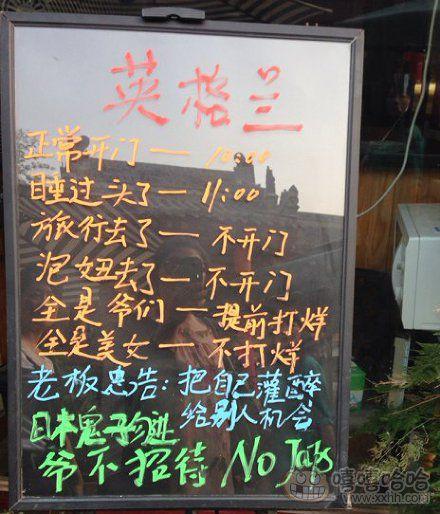 英格兰
正常开门 — 10:00
睡过头了 — 11:00
旅行去了 — 不开门
泡妞去了 — 不开门
全是爷们 — 提前打烊
全是美女 — 不打烊
老板忠告：把自己灌醉
给别人机会
日本鬼子勿进
爷不招待 No Japs
嘻嘻哈哈
www.xxhh.com